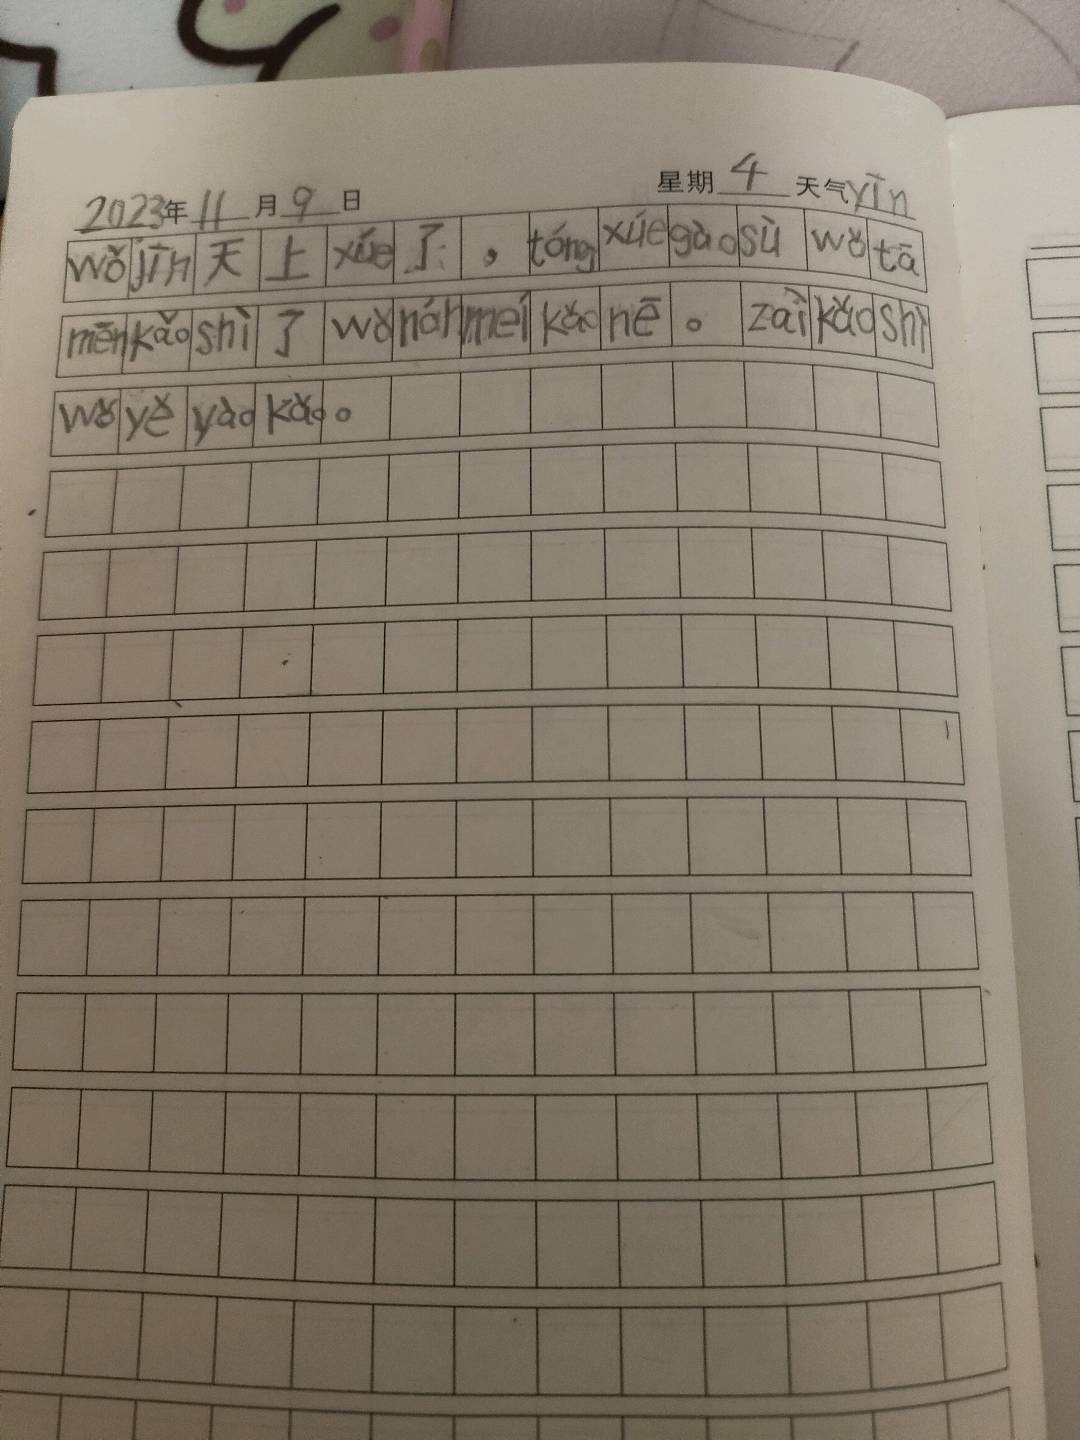 2023年11月9日 星期4天气yīn
wǒ jīn 天上 xúe 了，tóng xúe gào sù wǒ tā
mēn kǎo shì 了 wǒ hán meí kǎo nē。zaì kǎo shì
wǒ yě yào kǎo。